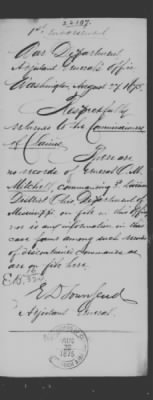 22107.
1st Endorsement
War Department
Adjutant General's Office
Washington, August 27, 1875.
Respectfully
returned to the Commissioners
of Claims.
There are
no records of General
Mitchell, commanding
District & this Department of
Mississippi on file in this Office
nor is any information in this
case found among such records
of discontinued commands as
are on file here.
E D Townsend
Adjutant General.
AUG
1875